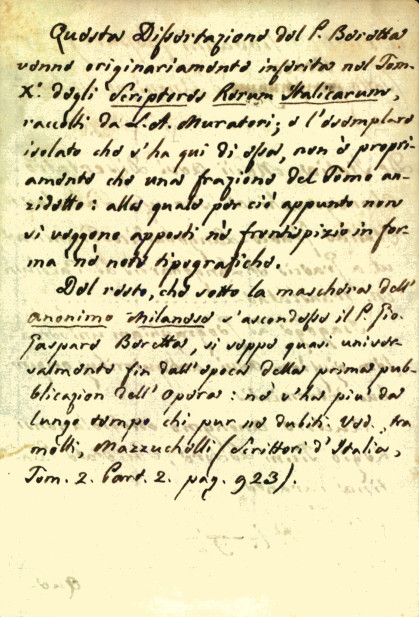 Questa Dissertazione del P. Beretta
venne originariamente inserita nel Tom.
X.° degli Scriptores Rerum Italicarum,
raccolti da L. A. Muratori; e l'esemplare
isolato che s'ha qui di essa, non è propri-
amente che una frazione del Tomo an-
zidetto: alla quale per ciò appunto non
si veggono apposti nè frontispizio in for-
ma nè note tipografiche.
Del resto, che sotto la maschera dell'
anonimo Milanese s'ascondesse il P. Gio.
Gaspare Beretta, si seppe quasi univer-
salmente fin dall'epoca della prima pub-
blicazion dell'Opera: nè v'ha più da
lungo tempo chi pur ne dubiti. Ved., tra
molti, Mazzuchelli (Scrittori d'Italia,
Tom. 2. Part. 2. pag. 923).